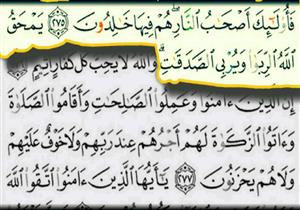 فَأُوْلَٰٓئِكَ أَصْحَٰبُ ٱلنَّارِ هُمْ فِيهَا خَٰلِدُونَ ٢٧٥ يَمْحَقُ
ٱللَّهُ ٱلرِّبَوٰاْ وَيُرْبِي ٱلصَّدَقَٰتِ وَٱللَّهُ لَا يُحِبُّ كُلَّ كَفَّارٍ أَثِيمٍ
إِنَّ ٱلَّذِينَ ءَامَنُواْ وَعَمِلُواْ ٱلصَّٰلِحَٰتِ وَأَقَامُواْ ٱلصَّلَوٰةَ
وَءَاتَوُاْ ٱلزَّكَوٰةَ لَهُمْ أَجْرُهُمْ عِندَ رَبِّهِمْ وَلَا خَوْفٌ عَلَيْهِمْ
وَلَا هُمْ يَحْزَنُونَ ٢٧٧ يَٰٓأَيُّهَا ٱلَّذِينَ ءَامَنُواْ ٱتَّقُواْ ٱللَّهَ